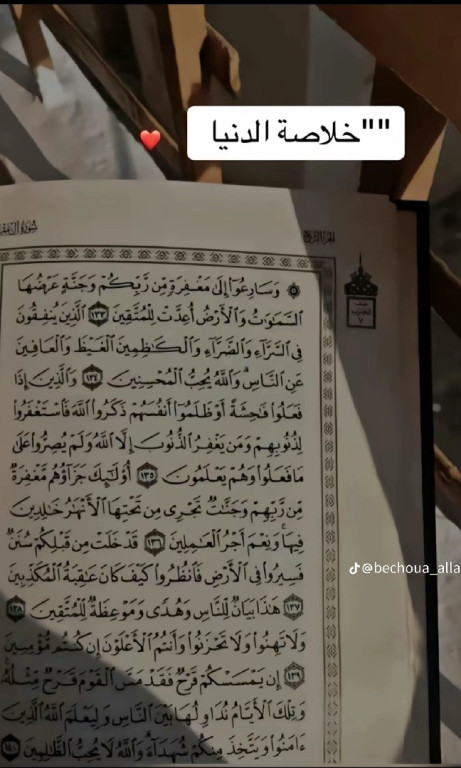 ""خلاصة الدنيا
الجزء الرابع
۞ وَسَارِعُوٓا۟ إِلَىٰ مَغْفِرَةٍ مِّن رَّبِّكُمْ وَجَنَّةٍ عَرْضُهَا
ٱلسَّمَٰوَٰتُ وَٱلْأَرْضُ أُعِدَّتْ لِلْمُتَّقِينَ ١٣٣ ٱلَّذِينَ يُنفِقُونَ
فِى ٱلسَّرَّآءِ وَٱلضَّرَّآءِ وَٱلْكَٰظِمِينَ ٱلْغَيْظَ وَٱلْعَافِينَ
عَنِ ٱلنَّاسِ ۗ وَٱللَّهُ يُحِبُّ ٱلْمُحْسِنِينَ ١٣٤ وَٱلَّذِينَ إِذَا
فَعَلُوا۟ فَٰحِشَةً أَوْ ظَلَمُوٓا۟ أَنفُسَهُمْ ذَكَرُوا۟ ٱللَّهَ فَٱسْتَغْفَرُوا۟
لِذُنُوبِهِمْ وَمَن يَغْفِرُ ٱلذُّنُوبَ إِلَّا ٱللَّهُ وَلَمْ يُصِرُّوا۟ عَلَىٰ
مَا فَعَلُوا۟ وَهُمْ يَعْلَمُونَ ١٣٥ أُو۟لَٰٓئِكَ جَزَآؤُهُم مَّغْفِرَةٌ
مِّن رَّبِّهِمْ وَجَنَّٰتٌ تَجْرِى مِن تَحْتِهَا ٱلْأَنْهَٰرُ خَٰلِدِينَ
فِيهَا ۚ وَنِعْمَ أَجْرُ ٱلْعَٰمِلِينَ ١٣٦ قَدْ خَلَتْ مِن قَبْلِكُمْ سُنَنٌ
فَسِيرُوا۟ فِى ٱلْأَرْضِ فَٱنظُرُوا۟ كَيْفَ كَانَ عَٰقِبَةُ ٱلْمُكَذِّبِينَ
١٣٧ هَٰذَا بَيَانٌ لِّلنَّاسِ وَهُدًى وَمَوْعِظَةٌ لِّلْمُتَّقِينَ ١٣٨
وَلَا تَهِنُوا۟ وَلَا تَحْزَنُوا۟ وَأَنتُمُ ٱلْأَعْلَوْنَ إِن كُنتُم مُّؤْمِنِينَ
١٣٩ إِن يَمْسَسْكُمْ قَرْحٌ فَقَدْ مَسَّ ٱلْقَوْمَ قَرْحٌ مِّثْلُهُۥ ۚ
وَتِلْكَ ٱلْأَيَّامُ نُدَاوِلُهَا بَيْنَ ٱلنَّاسِ وَلِيَعْلَمَ ٱللَّهُ ٱلَّذِينَ
ءَامَنُوا۟ وَيَتَّخِذَ مِنكُمْ شُهَدَآءَ ۗ وَٱللَّهُ لَا يُحِبُّ ٱلظَّٰلِمِينَ ١٤٠
نصف
الحزب
٧
@bechoua_alla